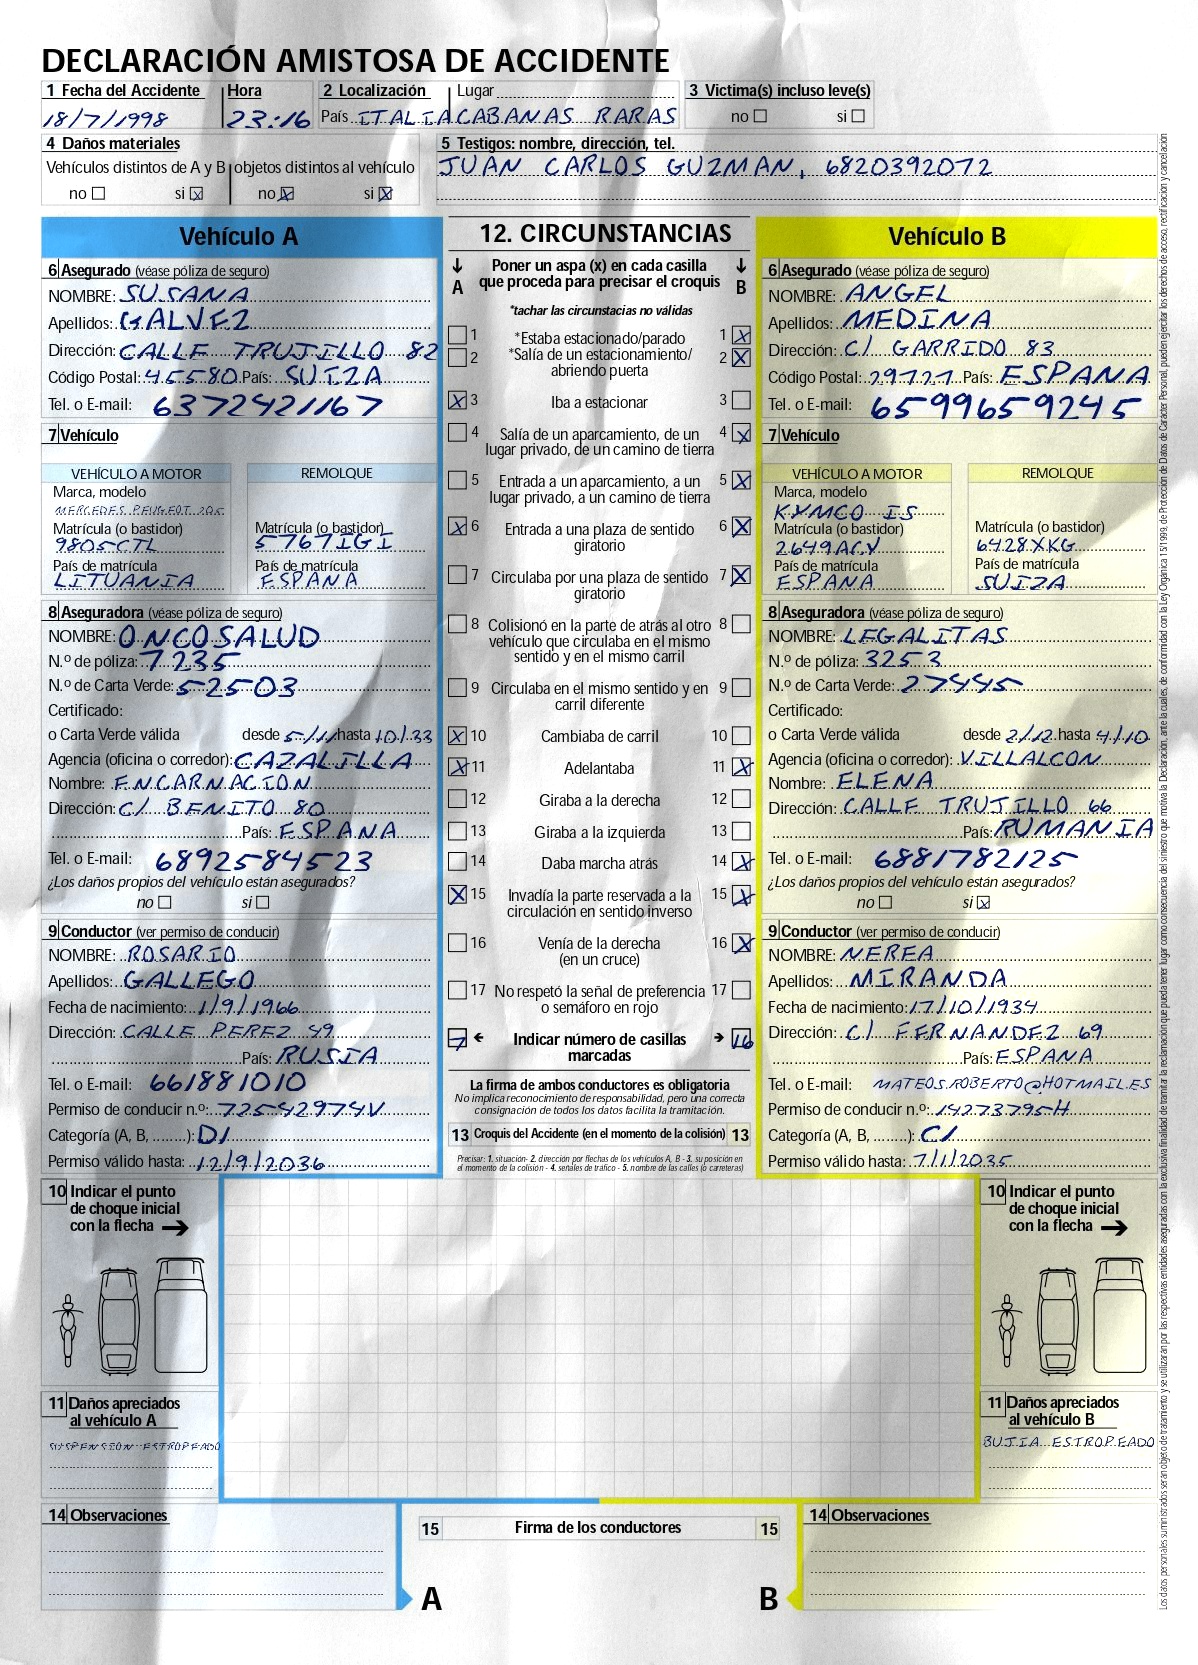 DECLARACIÓN AMISTOSA DE ACCIDENTE
1 Fecha del Accidente Hora 2 Localización Lugar 3 Victima(s) incluso leve(s)
18/7/1998 23:16 País ITALIA CABANAS RARAS no si
4 Daños materiales
Vehículos distintos de A y B objetos distintos al vehículo
no si X no X si X
5 Testigos: nombre, dirección, tel.
JUAN CARLOS GUZMAN, 6820392072
Vehículo A
6 Asegurado (véase póliza de seguro)
NOMBRE: SUSANA
Apellidos: GALVEZ
Dirección: CALLE TRUJILLO 82
Código Postal: 45580 País: SUIZA
Tel. o E-mail: 6372421167
7 Vehículo
VEHÍCULO A MOTOR REMOLQUE
Marca, modelo
MERCEDES PEUGEOT 205
Matrícula (o bastidor) Matrícula (o bastidor)
9805CTL 5767IGI
País de matrícula País de matrícula
LITUANIA ESPANA
8 Aseguradora (véase póliza de seguro)
NOMBRE: ONCOSALUD
N.º de póliza: 7235
N.º de Carta Verde: 52503
Certificado:
o Carta Verde válida desde 5/11 hasta 10/33
Agencia (oficina o corredor): CAZALILLA
Nombre: ENCARNACION
Dirección: C/ BENITO 80
País: ESPANA
Tel. o E-mail: 6892584523
¿Los daños propios del vehículo están asegurados?
no si
9 Conductor (ver permiso de conducir)
NOMBRE: ROSARIO
Apellidos: GALLEGO
Fecha de nacimiento: 1/9/1966
Dirección: CALLE PEREZ 49
País: RUSIA
Tel. o E-mail: 661881010
Permiso de conducir n.º: 72542974V
Categoría (A, B, ........): D1
Permiso válido hasta: 12/9/2036
12. CIRCUNSTANCIAS
A B
Poner un aspa (x) en cada casilla
que proceda para precisar el croquis
*tachar las circunstacias no válidas
1 *Estaba estacionado/parado 1 X
2 *Salía de un estacionamiento/ 2 X
abriendo puerta
X 3 Iba a estacionar 3
4 Salía de un aparcamiento, de un 4 X
lugar privado, de un camino de tierra
5 Entrada a un aparcamiento, a un 5 X
lugar privado, a un camino de tierra
X 6 Entrada a una plaza de sentido 6 X
giratorio
7 Circulaba por una plaza de sentido 7 X
giratorio
8 Colisionó en la parte de atrás al otro 8
vehículo que circulaba en el mismo
sentido y en el mismo carril
9 Circulaba en el mismo sentido y en 9
carril diferente
X 10 Cambiaba de carril 10
X 11 Adelantaba 11 X
12 Giraba a la derecha 12
13 Giraba a la izquierda 13
14 Daba marcha atrás 14 X
X 15 Invadía la parte reservada a la 15 X
circulación en sentido inverso
16 Venía de la derecha 16 X
(en un cruce)
17 No respetó la señal de preferencia 17
o semáforo en rojo
7 Indicar número de casillas 16
marcadas
La firma de ambos conductores es obligatoria
No implica reconocimiento de responsabilidad, pero una correcta
consignación de todos los datos facilita la tramitación.
13 Croquis del Accidente (en el momento de la colisión) 13
Precisar: 1. situación- 2. dirección por flechas de los vehículos A, B - 3. su posición en
el momento de la colisión - 4. señales de tráfico - 5. nombre de las calles (o carreteras)
Vehículo B
6 Asegurado (véase póliza de seguro)
NOMBRE: ANGEL
Apellidos: MEDINA
Dirección: C/ GARRIDO 83
Código Postal: 29727 País: ESPANA
Tel. o E-mail: 6599659245
7 Vehículo
VEHÍCULO A MOTOR REMOLQUE
Marca, modelo
KYMCO IS
Matrícula (o bastidor) Matrícula (o bastidor)
2649ACV 6428XKG
País de matrícula País de matrícula
ESPANA SUIZA
8 Aseguradora (véase póliza de seguro)
NOMBRE: LEGALITAS
N.º de póliza: 3253
N.º de Carta Verde: 27445
Certificado:
o Carta Verde válida desde 2/12 hasta 4/10
Agencia (oficina o corredor): VILLALCON
Nombre: ELENA
Dirección: CALLE TRUJILLO 66
País: RUMANIA
Tel. o E-mail: 6881782125
¿Los daños propios del vehículo están asegurados?
no si X
9 Conductor (ver permiso de conducir)
NOMBRE: NEREA
Apellidos: MIRANDA
Fecha de nacimiento: 17/10/1934
Dirección: C/ FERNANDEZ 69
País: ESPANA
Tel. o E-mail: MATEOS.ROBERTO@HOTMAIL.ES
Permiso de conducir n.º: 14273795H
Categoría (A, B, ........): C1
Permiso válido hasta: 7/1/2035
10 Indicar el punto
de choque inicial
con la flecha
11 Daños apreciados
al vehículo A
SUSPENSION ESTROPEADO
10 Indicar el punto
de choque inicial
con la flecha
11 Daños apreciados
al vehículo B
BUJIA ESTROPEADO
14 Observaciones
15 Firma de los conductores 15
A B
14 Observaciones
Los datos personales suministrados seran objeto de tratamiento y se utilizaran por las respectivas entidades aseguradas con la exclusiva finalidad de tramitar la reclamación que pueda tener lugar como consecuencia del siniestro que motiva la Declaración, ante la cuales, de conformidad con la Ley Orgánica 15/1999, de Protección de Datos de Carácter Personal, pueden ejercitar los derechos de acceso, rectificación y cancelación